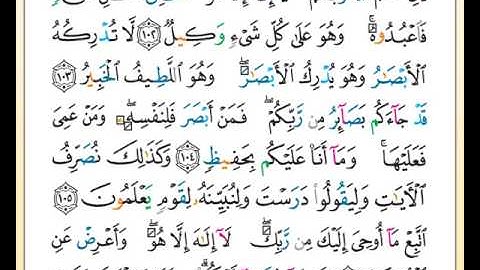 فَٱعْبُدُوهُ ۚ وَهُوَ عَلَىٰ كُلِّ شَىْءٍ وَكِيلٌ ۝١٠٢ لَّا تُدْرِكُهُ
ٱلْأَبْصَـٰرُ وَهُوَ يُدْرِكُ ٱلْأَبْصَـٰرَ ۖ وَهُوَ ٱللَّطِيفُ ٱلْخَبِيرُ ۝١٠٣
قَدْ جَآءَكُم بَصَآئِرُ مِن رَّبِّكُمْ ۖ فَمَنْ أَبْصَرَ فَلِنَفْسِهِۦ ۖ وَمَنْ عَمِىَ
فَعَلَيْهَا ۚ وَمَآ أَنَا۠ عَلَيْكُم بِحَفِيظٍ ۝١٠٤ وَكَذَٰلِكَ نُصَرِّفُ
ٱلْـَٔايَـٰتِ وَلِيَقُولُوا۟ دَرَسْتَ وَلِنُبَيِّنَهُۥ لِقَوْمٍ يَعْلَمُونَ ۝١٠٥
ٱتَّبِعْ مَآ أُوحِىَ إِلَيْكَ مِن رَّبِّكَ ۖ لَآ إِلَـٰهَ إِلَّا هُوَ ۖ وَأَعْرِضْ عَنِ